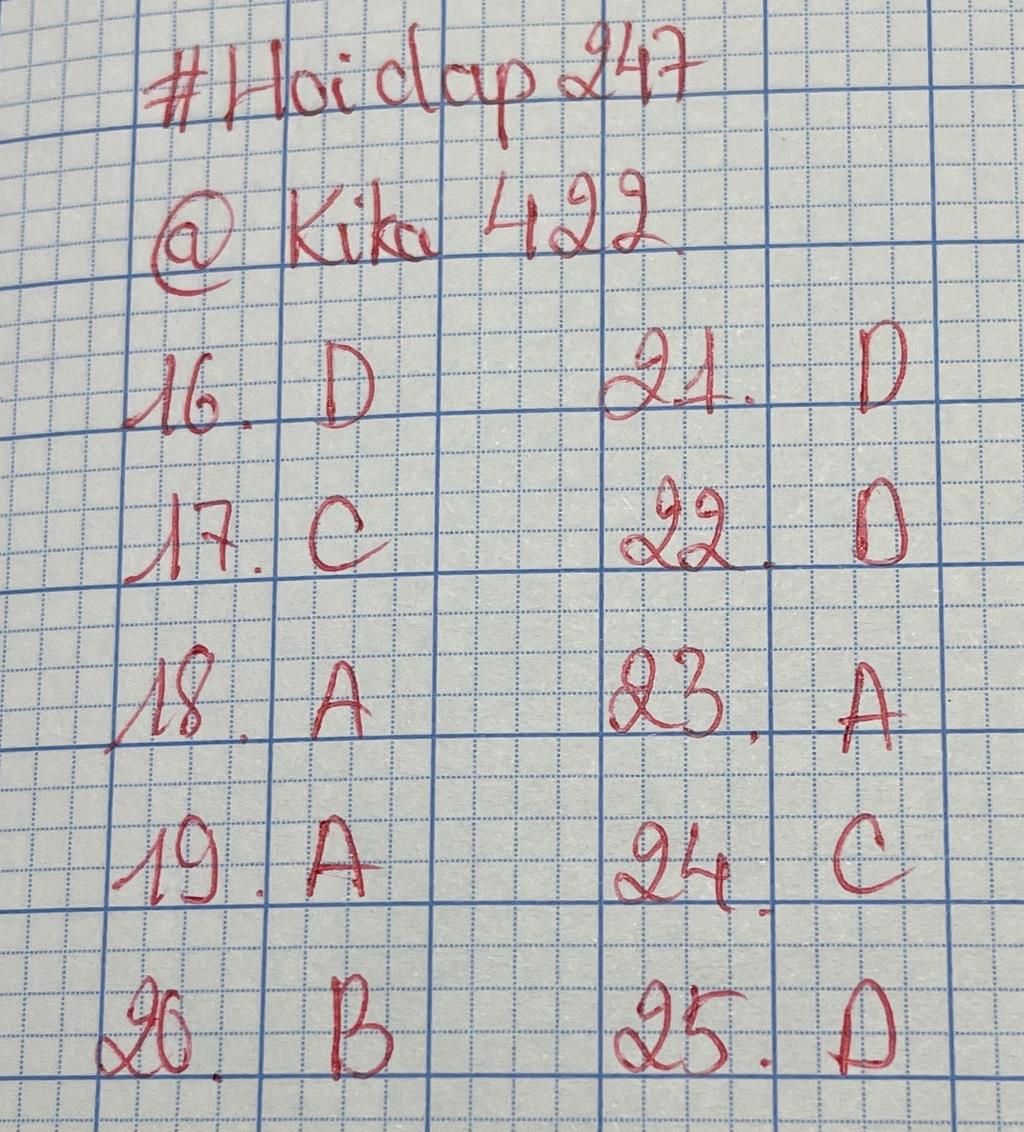 #Hoidap247
@Kika422
16. D 21. D
17. C 22. D
18. A 23. A
19. A 24. C
20. B 25. D